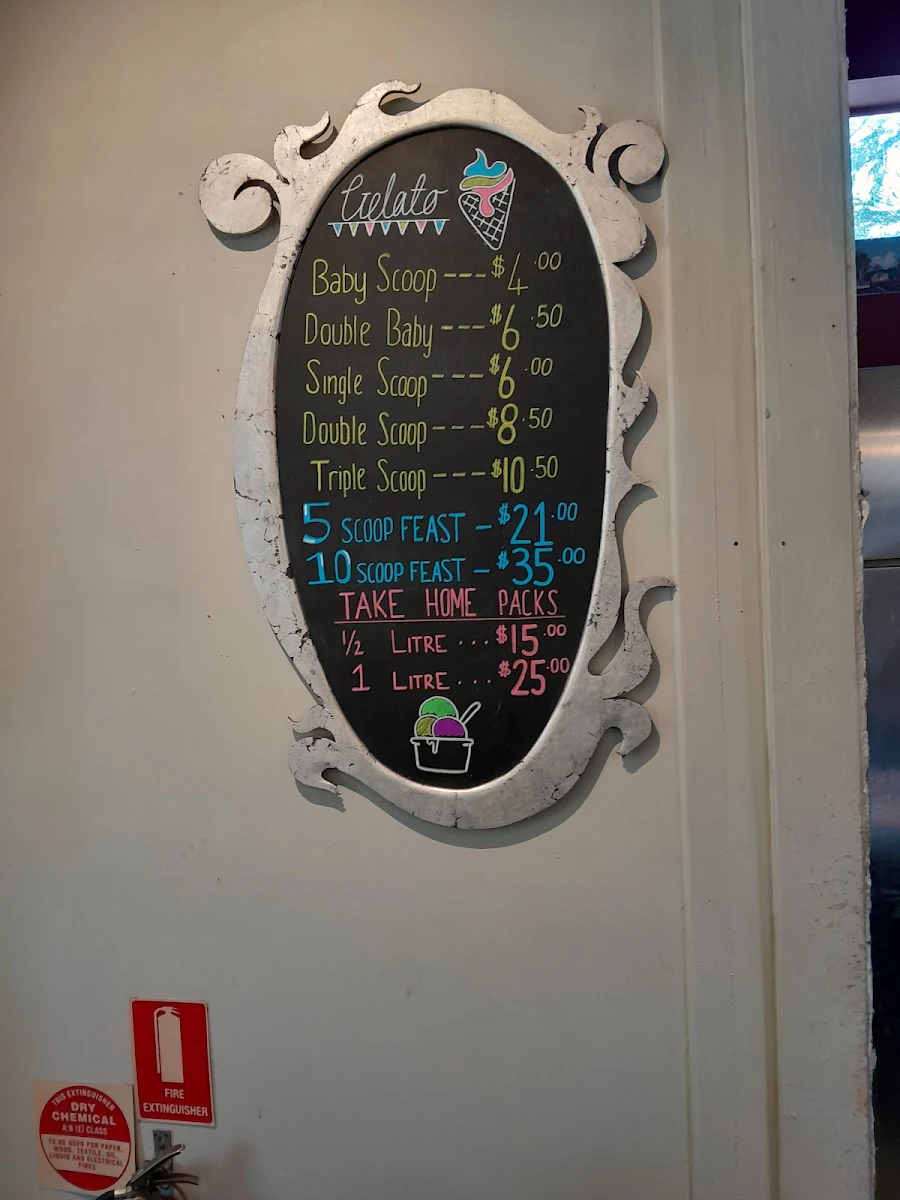 Gelato
Baby Scoop --- $4.00
Double Baby --- $6.50
Single Scoop --- $6.00
Double Scoop --- $8.50
Triple Scoop --- $10.50
5 SCOOP FEAST - $21.00
10 SCOOP FEAST - $35.00
TAKE HOME PACKS
1/2 LITRE ... $15.00
1 LITRE ... $25.00
FIRE
EXTINGUISHER
THIS EXTINGUISHER
DRY
CHEMICAL
A:B (E) CLASS
TO BE USED FOR PAPER,
WOOD, TEXTILE, OIL,
LIQUID AND ELECTRICAL
FIRES